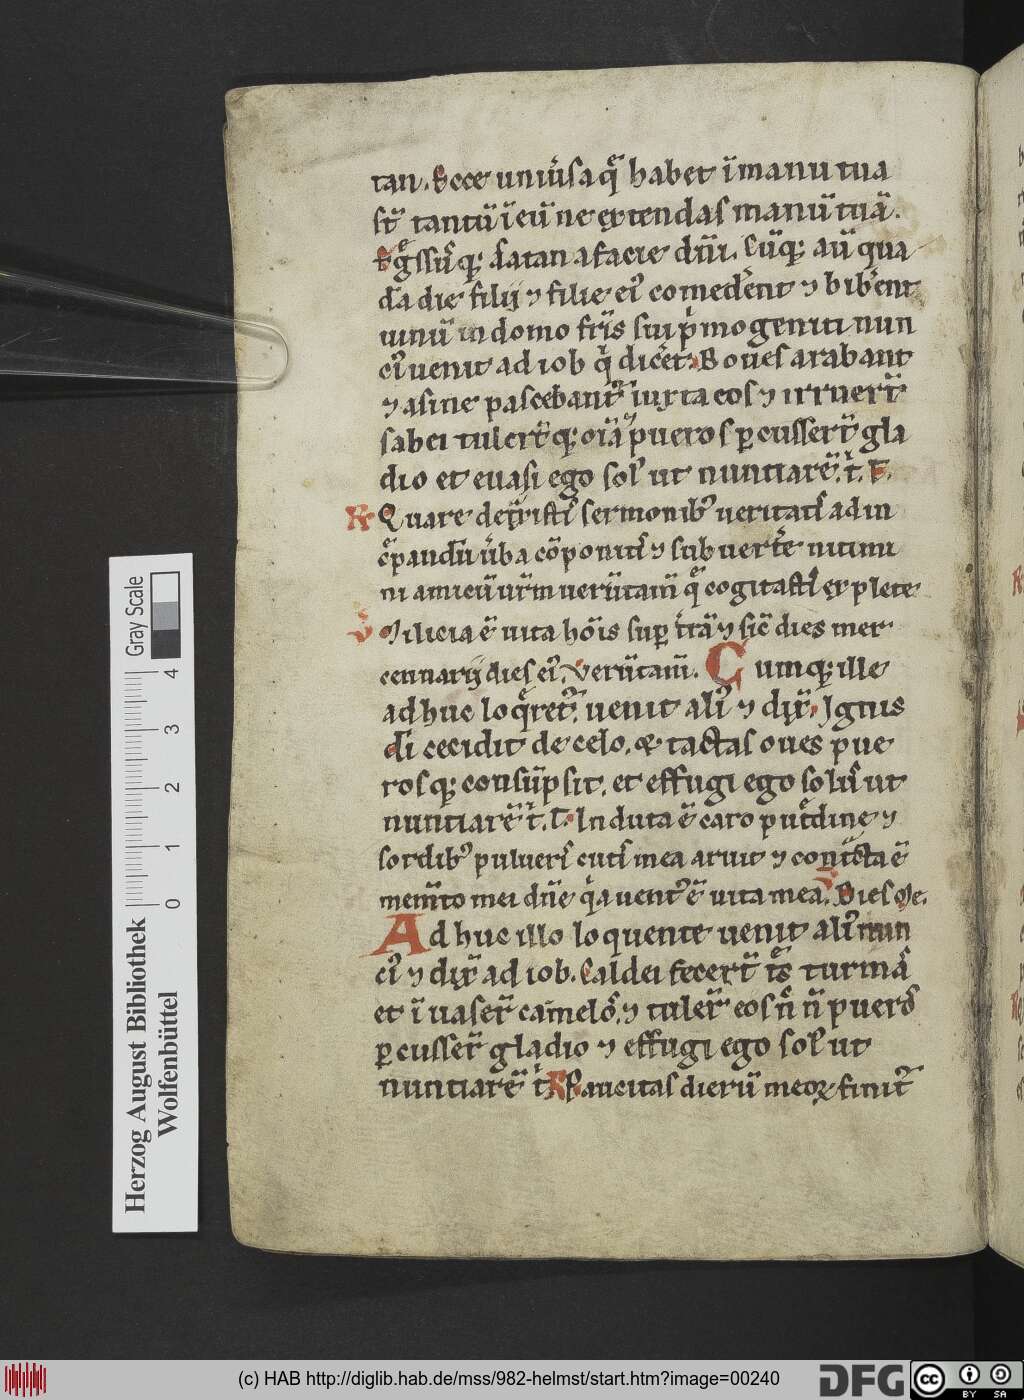 tan. Ecce uniũsa q̃ habet ĩ manu tua
st̃ tantũ ĩ eũ ne extendas manũ tuã.
Eg̃ssũ q; satan a facie dñi. Cũq; aũ qua
dã die filij ⁊ filie ei᾽ comederẽt ⁊ biberẽt
uinũ in domo fr̃is sui p̃mogeniti nun
ci᾽ uenit ad iob q̃ dicẽt. Boues arabant
⁊ asine pascebant᾽ iuxta eos ⁊ irruer̃t
sabei tuler̃tq; oĩa ⁊ pueros ꝑcusser̃t gla
dio et euasi ego sol᾽ ut nuntiarẽ t̃. T.
R Quare det̃xisti᾽ sermonib᾽ ueritati᾽ ad in
c̃pandũ ũba cõponiti᾽ ⁊ subuert̃e nitimi
ni amicũ ur̃m uerũtam̃ q̃ cogitasti᾽ explete
V Milicia ẽ uita hõis sup t̃rã ⁊ sic̃ dies mer
cennarij dies ei᾽. Verũtam̃. Cumq; ille
adhuc loq̃ret᾽. uenit ali᾽ ⁊ dix̃. Ignis
di᾽ cecidit de celo. ⁊ tactas oues pue
rosq; consũpsit. et effugi ego solus̃ ut
nuntiarẽ t̃. T. Induta ẽ caro put̃dine ⁊
sordib᾽ pulueri᾽ cuti᾽ mea aruit ⁊ cont̃cta ẽ
mem̃to mei dñe q̃a uent᾽ ẽ uita mea. V Dies me.
Adhuc illo loquente uenit ali᾽ nun
ci᾽ ⁊ dix̃ ad iob. Caldei fecer̃t t̃s turmas̃
et ĩuaser̃ camelos̃. ⁊ tuler̃ eos ñ ñ ⁊ pueros̃
ꝑcusser̃ gladio ⁊ effugi ego sol᾽ ut
nuntiarẽ t̃ R Paucitas dierũ meoꝝ finit᾽
Herzog August Bibliothek
Wolfenbüttel
0 1 2 3 4
Gray Scale
(c) HAB http://diglib.hab.de/mss/982-helmst/start.htm?image=00240
DFG
cc BY SA